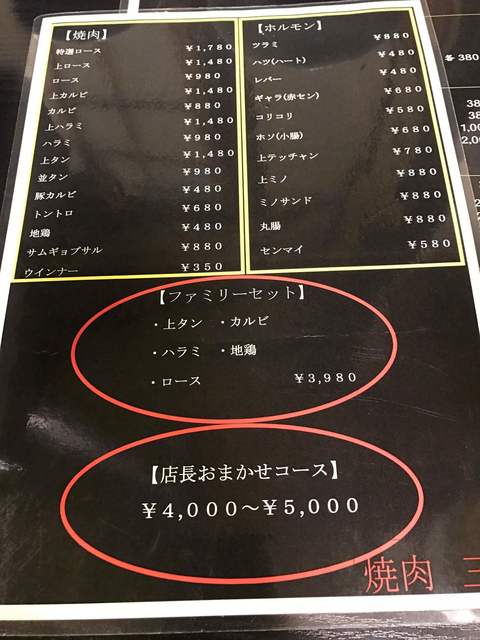 【焼肉】
特選ロース ￥1,780
上ロース ￥1,480
ロース ￥980
上カルビ ￥1,480
カルビ ￥880
上ハラミ ￥1,480
ハラミ ￥980
上タン ￥1,480
並タン ￥980
豚カルビ ￥480
トントロ ￥680
地鶏 ￥480
サムギョプサル ￥880
ウインナー ￥350
【ホルモン】
ツラミ ￥880
ハツ(ハート) ￥480
レバー ￥480
ギャラ(赤セン) ￥680
コリコリ ￥580
ホソ(小腸) ￥680
上テッチャン ￥780
上ミノ ￥880
ミノサンド ￥880
丸腸 ￥880
センマイ ￥580
【ファミリーセット】
・上タン ・カルビ
・ハラミ ・地鶏
・ロース ￥3,980
【店長おまかせコース】
￥4,000〜￥5,000
焼肉
各 380